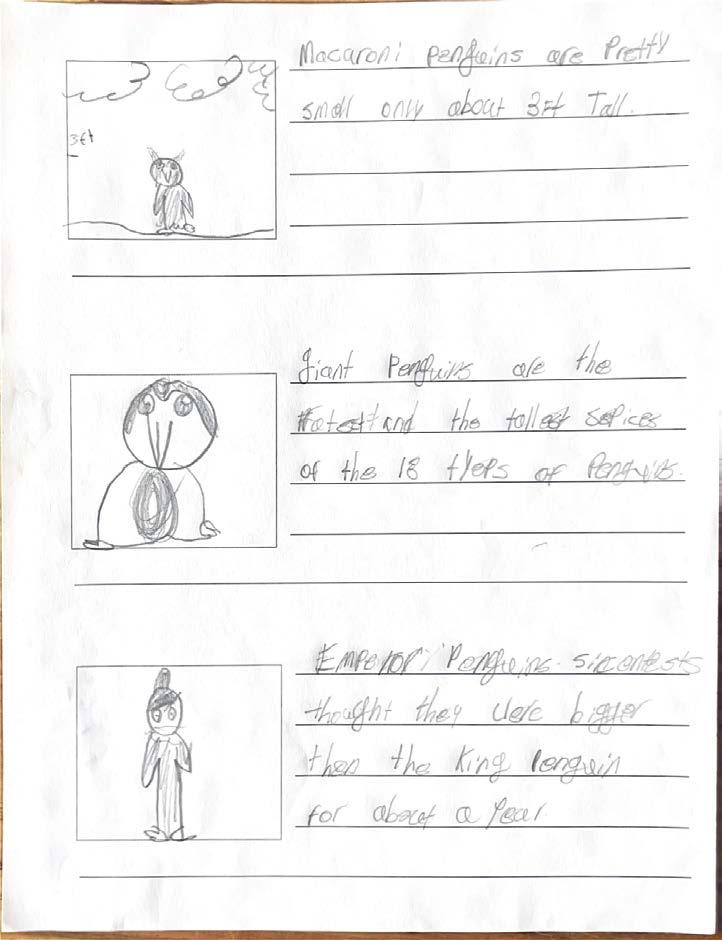 Macaroni penguins are Pretty
small only about 3ft Tall.
3ft
giant Penguins are the
fatest and the tallest sepices
of the 18 tyeps of Penguins.
Emperor Penguins sincentests
thought they were bigger
then the King Penguin
for about a year.